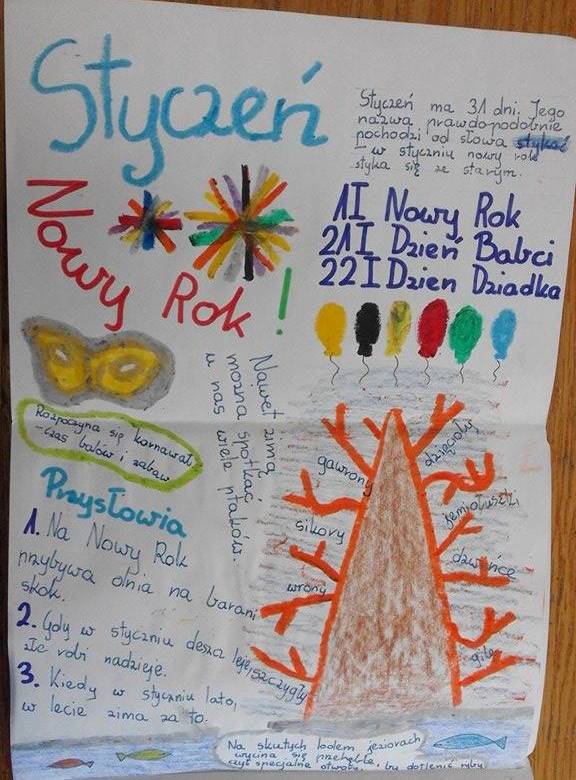 Styczeń
Styczeń ma 31 dni. Jego
nazwa prawdopodobnie
pochodzi od słowa stykać
I w styczniu nowy rok
styka się ze starym.
Nowy Rok!
1 I Nowy Rok
21 I Dzień Babci
22 I Dzien Dziadka
Rozpoczyna się karnawał
- czas balów i zabaw
Nawet zimą
można spotkać
u nas wiele ptaków.
gawrony
dzięcioły
sikory
jemiołuszki
wrony
dzwońce
szczygły
gile
Przysłowia
1. Na Nowy Rok
przybywa dnia na barani
skok.
2. Gdy w styczniu deszcz leje,
złe robi nadzieje.
3. Kiedy w styczniu lato,
w lecie zima za to.
Na skutych lodem jeziorach
wycina się przeręble,
czyli specjalne otwory, by dotlenić ryby